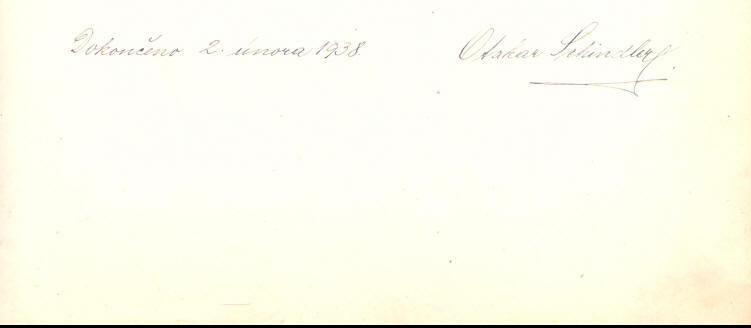 Dokončeno 2. února 1938. Otakar Schindler.